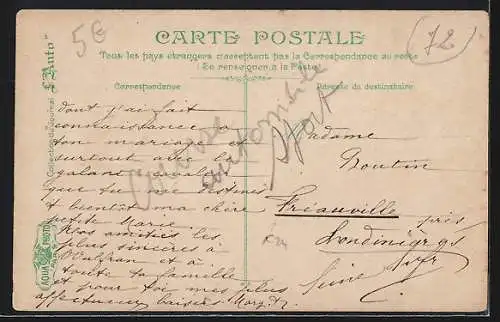 5€
CARTE POSTALE
72
Tous les pays étrangers n'acceptent pas la Correspondance au recto
(Se renseigner à la Poste)
Correspondance
Adresse du destinataire
Collection du Journal "L'Auto"
AQUA PHOTO
dont j'ai fait
connaissance
ton mariage et
surtout avec le
galant cavalier
que tu me destines
A bientôt ma chère
petite Marie.
Nos amitiés les
plus sincères à
et à
toute ta famille
et pour toi mes plus
affectueux baisers
Course
automobile
Sport
Madame
Boutin
Friauville
près